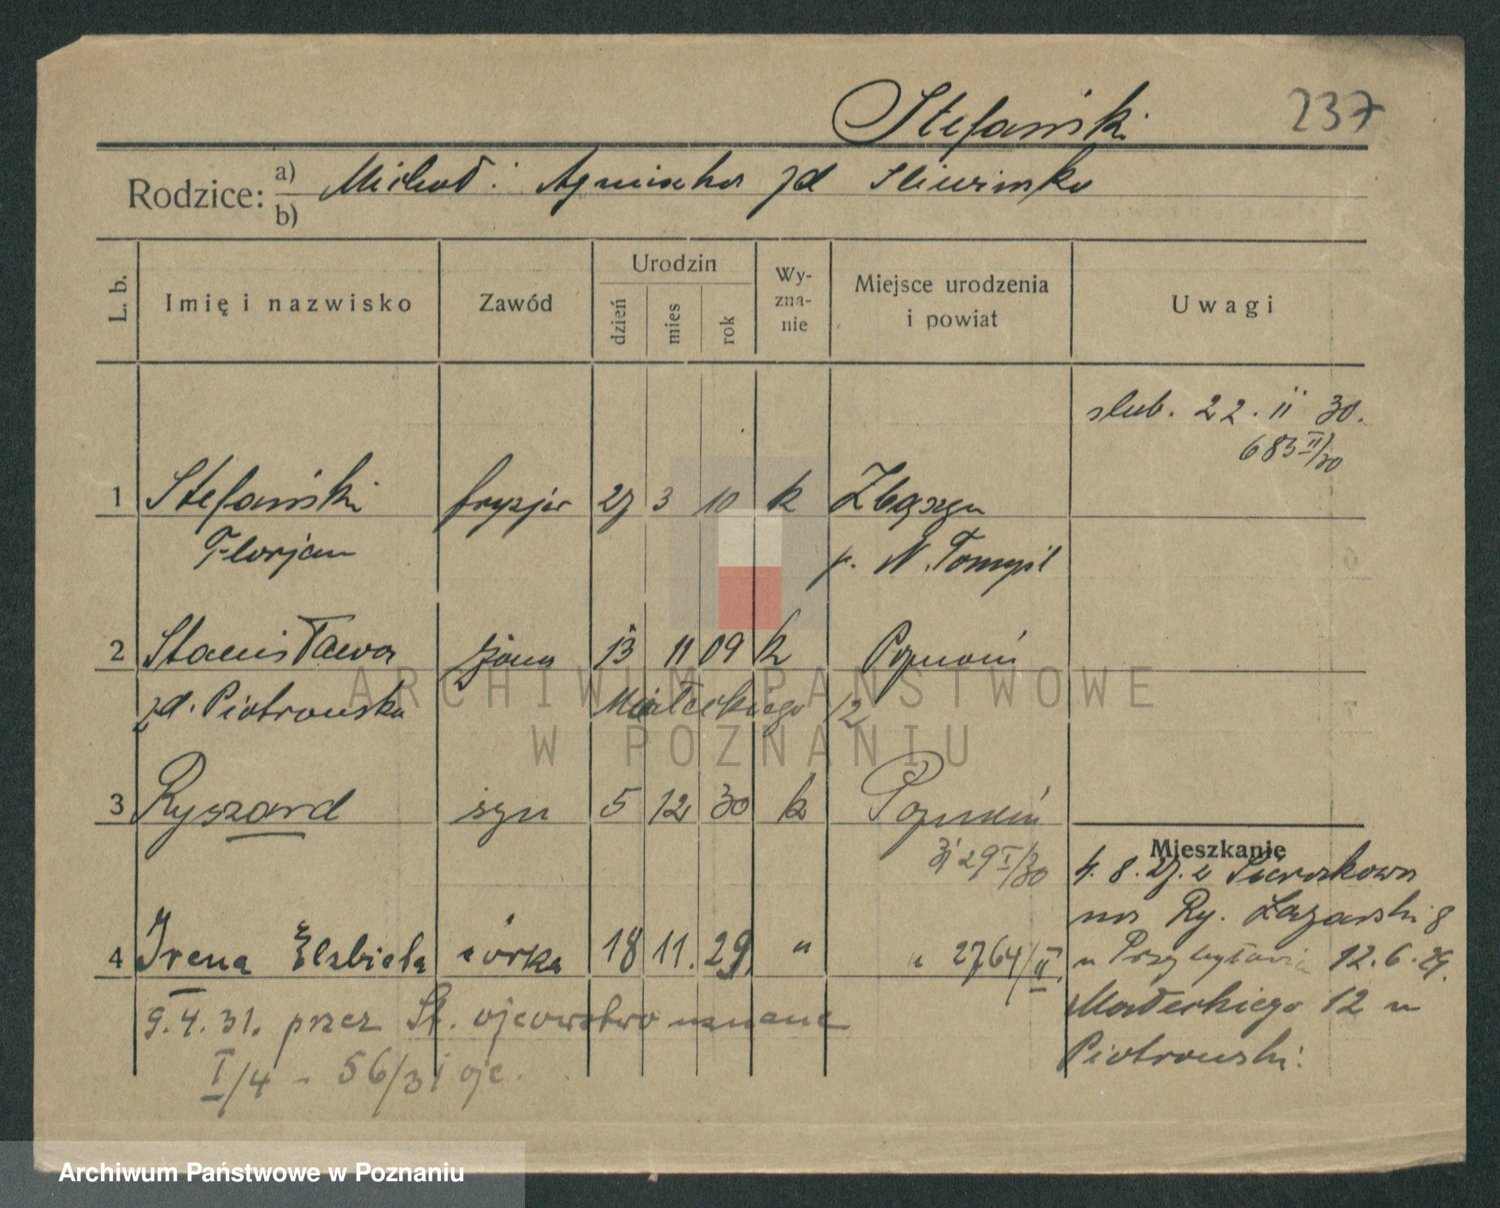 Stefański 237
Rodzice: a) Michał i Agnieszka zd Śliwińska
b)
L. b. Imię i nazwisko Zawód Urodzin dzień mies rok Wy-zna-nie Miejsce urodzenia i powiat Uwagi
slub. 22. II 30.
683 II/30
1 Stefański fryzjer 27 3 10 k Zbąszyn
Florjan p. N. Tomyśl
2 Stanisława żona 13 11 09 k Poznań
zd. Piotrowska Małeckiego 12
3 Ryszard syn 5 12 30 k Poznań
29 I/30
Mieszkanie
4. 8. 27. z
na Ry. Łazarski 8
4 Irena Elżbieta córka 18 11. 29 " " 2764/II
u 12.6.29.
9.4.31. przez St. ojcowstwo uznane
Małeckiego 12 u
I/4 - 56/31 ojc.
Piotrowski.
ARCHIWUM PAŃSTWOWE
W POZNANIU
Archiwum Państwowe w Poznaniu